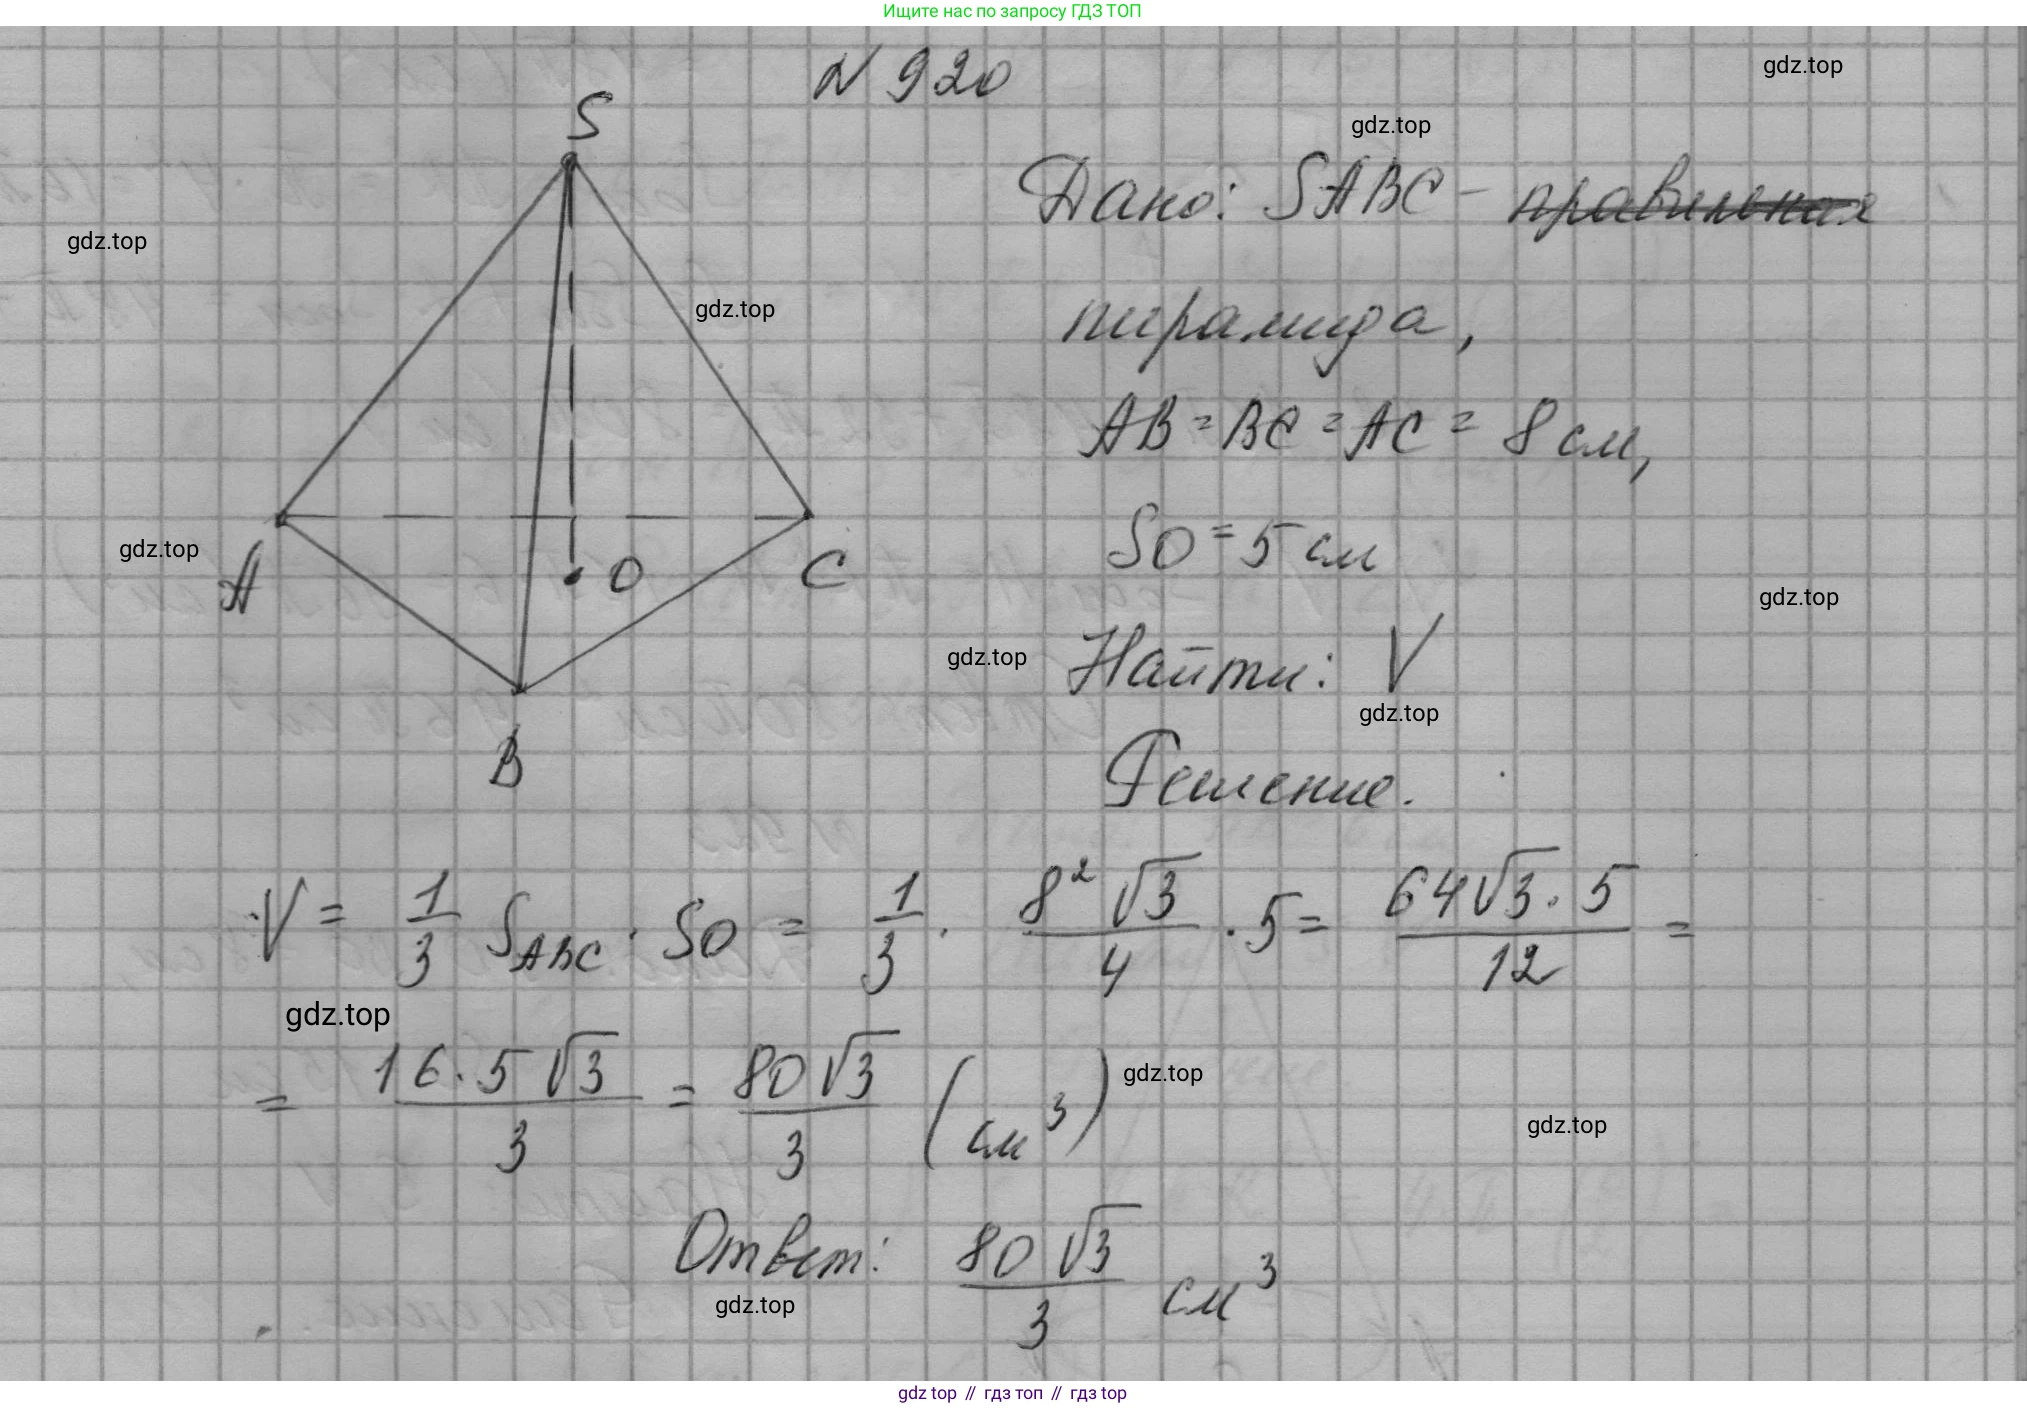 Ищите нас по запросу ГДЗ ТОП
N 920
gdz.top
gdz.top
S
Дано: SABC - правильная
gdz.top
gdz.top
пирамида,
AB = BC = AC = 8 см,
SO = 5 см
gdz.top
A
O
C
gdz.top
gdz.top
Найти: V
gdz.top
B
Решение.
V = 1/3 S_ABC · SO = 1/3 · 8² √3/4 · 5 = 64√3 · 5/12 =
gdz.top
= 16 · 5 √3/3 = 80 √3/3 (см³)
gdz.top
gdz.top
Ответ: 80 √3/3 см³
gdz.top
gdz top // гдз топ // гдз top